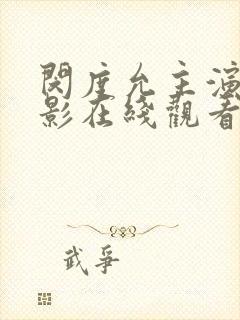 閔度允主演
影在綫觀看
武爭